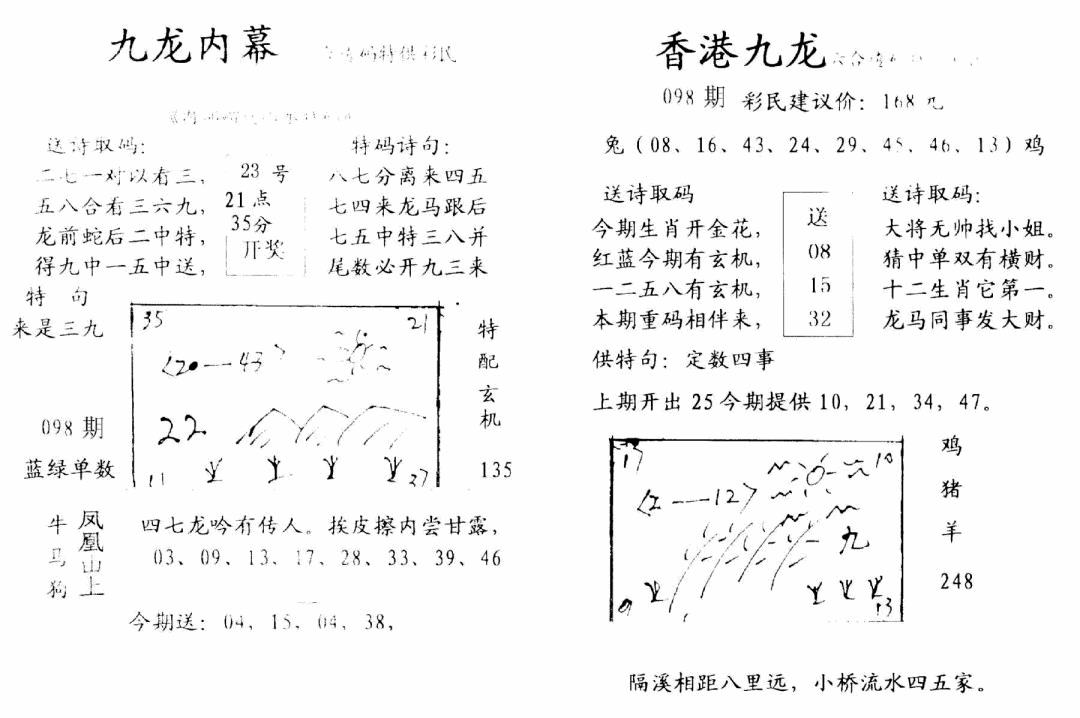 九龙内幕
码特供彩民
送诗取码:
二七一对以看三,
五八合看三六九,
龙前蛇后二中特,
得九中一五中送,
23 号
21 点
35分
开奖
特码诗句:
八七分离来四五
七四来龙马跟后
七五中特三八并
尾数必开九三来
特 句
来是三九
35 21
20—43
22
11 27
特
配
玄
机
135
098 期
蓝绿单数
牛
马
狗
凤
凰
山
上
四七龙吟有传人。挨皮擦内尝甘露,
03、09、13、17、28、33、39、46
今期送: 04、15、04、38,
香港九龙
098 期 彩民建议价: 168 元
兔(08、16、43、24、29、45、46、13)鸡
送诗取码
今期生肖开金花,
红蓝今期有玄机,
一二五八有玄机,
本期重码相伴来,
送
08
15
32
送诗取码:
大将无帅找小姐。
猜中单双有横财。
十二生肖它第一。
龙马同事发大财。
供特句: 定数四事
上期开出 25 今期提供 10, 21, 34, 47。
17 10
2—12
九
9 13
鸡
猪
羊
248
隔溪相距八里远, 小桥流水四五家。